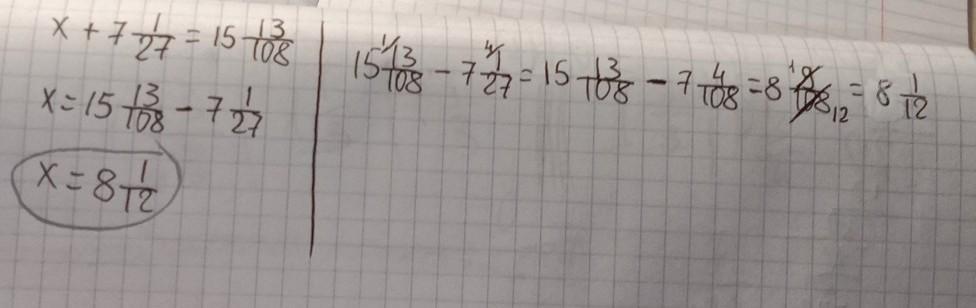 x + 7 1/27 = 15 13/108
x = 15 13/108 - 7 1/27
x = 8 1/12
15 13/108 - 7 1/27 = 15 13/108 - 7 4/108 = 8 9/108 = 8 1/12